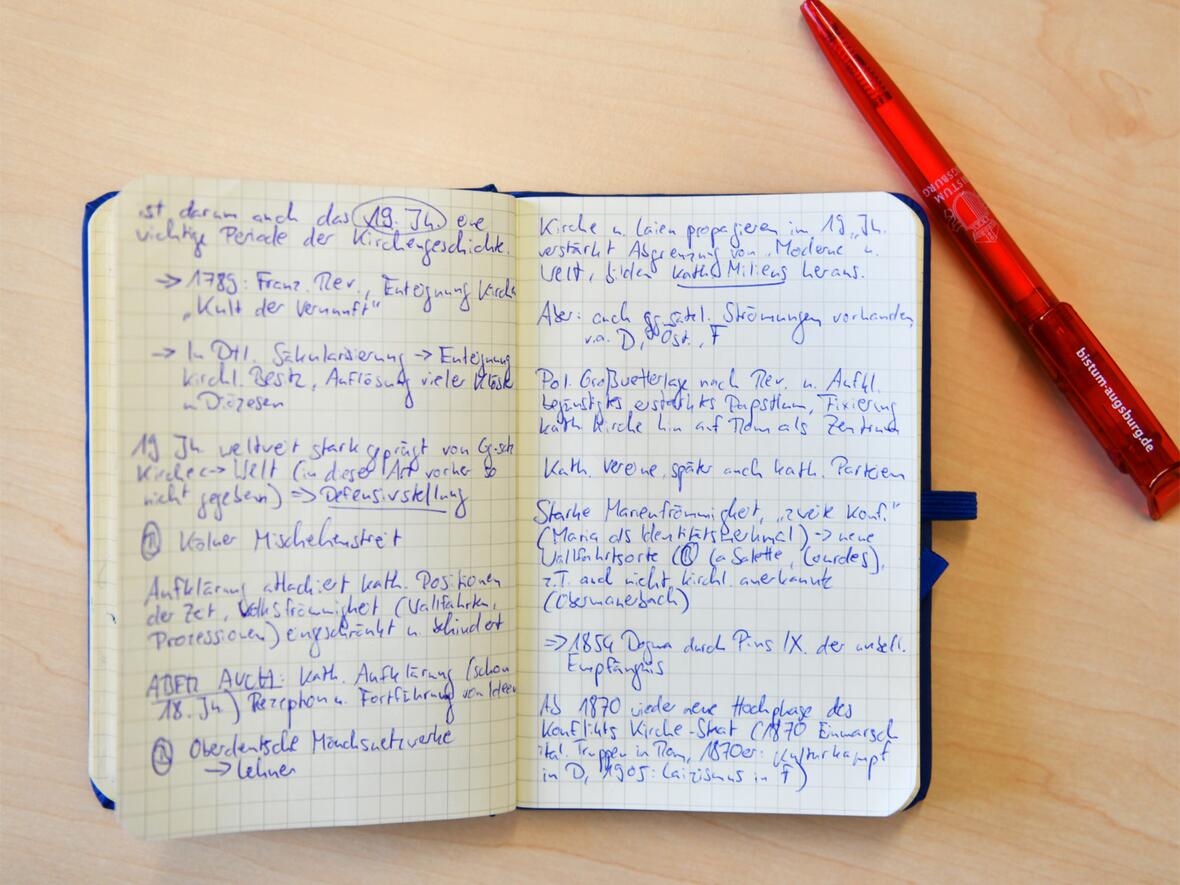 ist darum auch das 19. Jh. eine
wichtige Periode der Kirchengeschichte.
→ 1789: Franz. Rev., Enteignung Kirche
„Kult der Vernunft"
→ In Dtl. Säkularisierung → Enteignung
kirchl. Besitz, Auflösung vieler Klöster
u Diözesen
19 Jh. weltweit stark geprägt von Ggsatz
Kirche <-> Welt (in dieser Art vorher so
nicht gegeben) => Defensivstellung
Kölner Mischehenstreit
Aufklärung attackiert kath. Positionen
der Zeit, Volksfrömmigkeit (Wallfahrten,
Prozessionen) eingeschränkt u. behindert
ABER AUCH: kath. Aufklärung (schon
18. Jh.) Rezeption u. Fortführung von Ideen
Oberdeutsche Mönchsnetzwerke
→ Lehner
Kirche u. Laien propagieren im 19. Jh.
verstärkt Abgrenzung von „Moderne" u.
Welt, bilden kath. Milieus heraus.
Aber: auch ggsätzl. Strömungen vorhanden,
v.a. D, Öst., F
Pol. Großwetterlage nach Rev. u. Aufkl.
begünstigt erstarktes Papsttum, Fixierung
kath Kirche hin auf Rom als Zentrum
Kath. Vereine, später auch kath. Parteien
Starke Marienfrömmigkeit, „zweite Konf."
(Maria als Identitätsmerkmal) -> neue
Wallfahrtsorte (La Salette, Lourdes),
z.T. auch nicht kirchl. anerkannte
(Obermauerbach)
=> 1854 Dogma durch Pius IX. der unbefl.
Empfängnis
Ab 1870 wieder neue Hochphase des
Konflikts Kirche-Staat (1870 Einmarsch
ital. Truppen in Rom, 1870er: Kulturkampf
in D, 1905: Laizismus in F)
BISTUM
AUGSBURG
bistum-augsburg.de